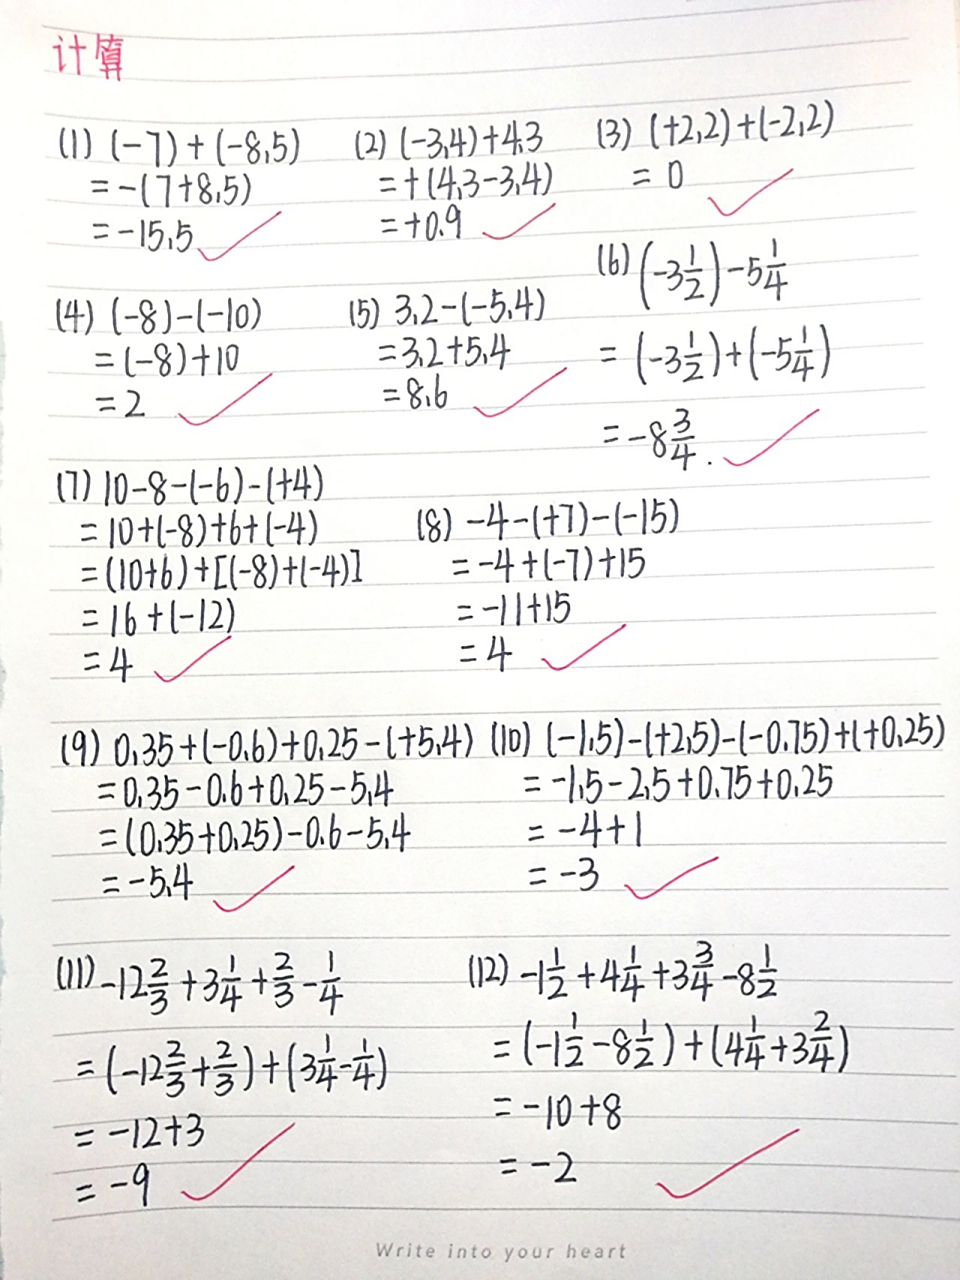 计算
(1) (-7)+(-8.5)
=-(7+8.5)
=-15.5
(2) (-3.4)+4.3
=+(4.3-3.4)
=+0.9
(3) (+2.2)+(-2.2)
=0
(4) (-8)-(-10)
=(-8)+10
=2
(5) 3.2-(-5.4)
=3.2+5.4
=8.6
(6) (-3 1/2)-5 1/4
=(-3 1/2)+(-5 1/4)
=-8 3/4.
(7) 10-8-(-6)-(+4)
=10+(-8)+6+(-4)
=(10+6)+[(-8)+(-4)]
=16+(-12)
=4
(8) -4-(+7)-(-15)
=-4+(-7)+15
=-11+15
=4
(9) 0.35+(-0.6)+0.25-(+5.4)
=0.35-0.6+0.25-5.4
=(0.35+0.25)-0.6-5.4
=-5.4
(10) (-1.5)-(+2.5)-(-0.75)+(+0.25)
=-1.5-2.5+0.75+0.25
=-4+1
=-3
(11) -12 2/3+3 1/4+2/3-1/4
=(-12 2/3+2/3)+(3 1/4-1/4)
=-12+3
=-9
(12) -1 1/2+4 1/4+3 3/4-8 1/2
=(-1 1/2-8 1/2)+(4 1/4+3 2/4)
=-10+8
=-2
Write into your heart